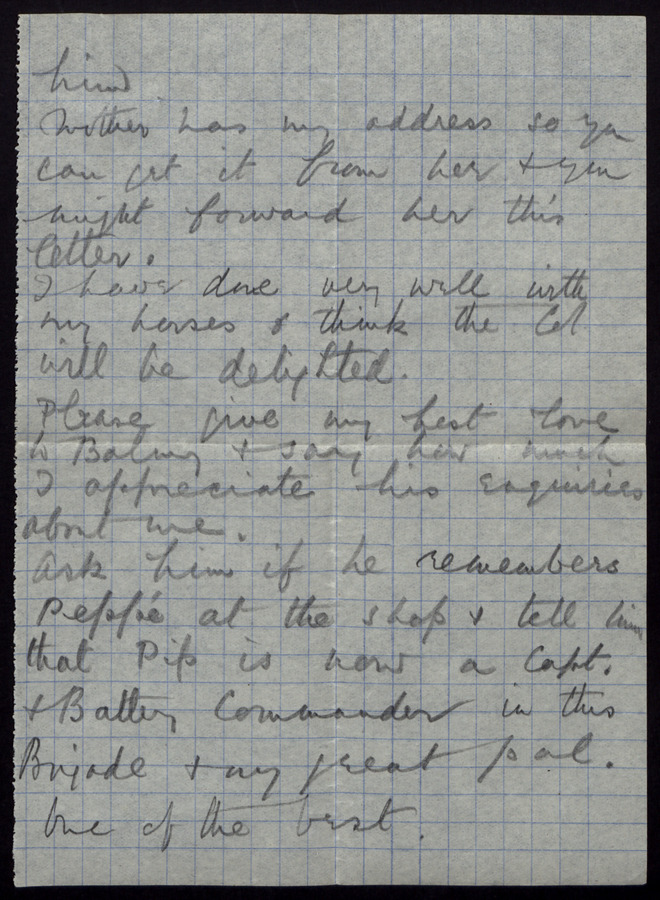 him
Mother has my address so you
can get it from her & you
might forward her this
letter.
I have done very well with
my horses & think the Col
will be delighted.
Please give my best love
to Balmy & say how much
I appreciate his enquiries
about me.
Ask him if he remembers
Peppé at the shop & tell him
that Pip is now a Capt.
& Battery Commander in this
Brigade & my great pal.
One of the best.